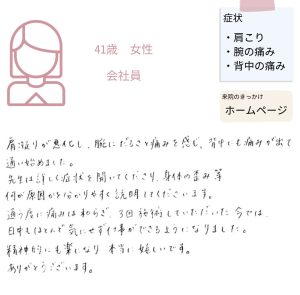 41歳 女性
会社員
症状
・肩こり
・腕の痛み
・背中の痛み
来院のきっかけ
ホームページ
肩凝りが悪化し、腕にだるさと痛みを感じ、背中にも痛みが出て
通い始めました。
先生は詳しく症状を聞いてくださり、身体の歪み等
何が原因かを分かりやすく説明してくださいます。
通う度に痛みは和らぎ、3回施術していただいた今では、
日中もほとんど気にせず仕事ができるようになりました。
精神的にも楽になり本当に嬉しいです。
ありがとうございます。